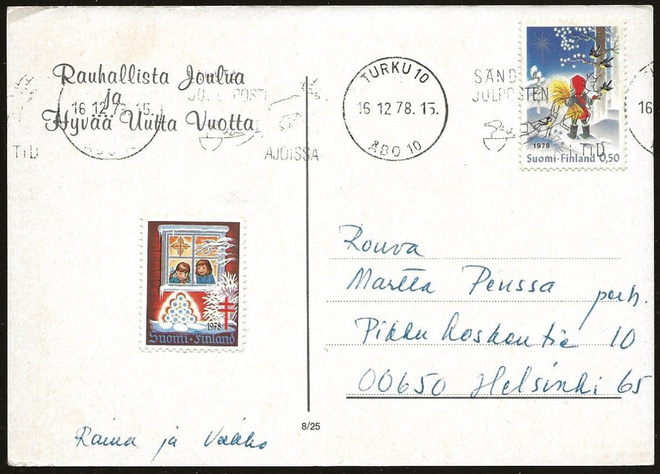 Rauhallista Joulua
ja
Hyvää Uutta Vuotta
16.12.78.15.
JUL POSTEN
TID
ÅBO
AJOISSA
TURKU 10
16.12.78.15.
ÅBO 10
SÄND
JULPOSTEN
I TID
1978
Suomi-Finland 0,50
1978
Suomi·Finland
Rouva
Martta Penssa perh.
Pikku Koskentie 10
00650 Helsinki 65
Raina ja Veikko
8/25